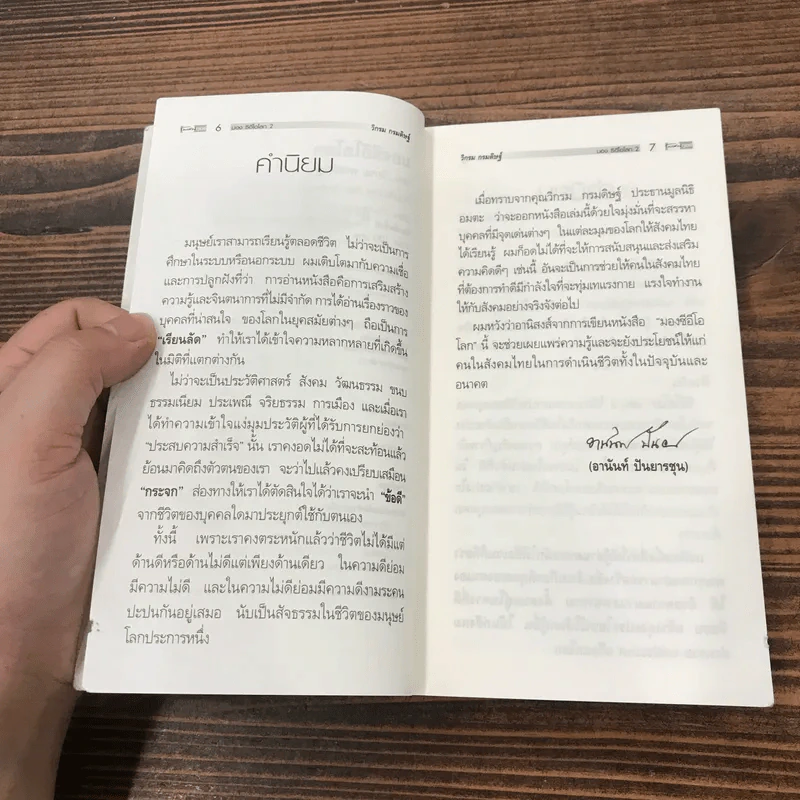 6 มอง ซีอีโอโลก 2 วิกรม กรมดิษฐ์
คำนิยม
มนุษย์เราสามารถเรียนรู้ตลอดชีวิต ไม่ว่าจะเป็นการ
ศึกษาในระบบหรือนอกระบบ ผมเติบโตมากับความเชื่อ
และการปลูกฝังที่ว่า การอ่านหนังสือคือการเสริมสร้าง
ความรู้และจินตนาการที่ไม่มีจำกัด การได้อ่านเรื่องราวของ
บุคคลที่น่าสนใจ ของโลกในยุคสมัยต่างๆ ถือเป็นการ
"เรียนลัด" ทำให้เราได้เข้าใจความหลากหลายที่เกิดขึ้น
ในมิติที่แตกต่างกัน
ไม่ว่าจะเป็นประวัติศาสตร์ สังคม วัฒนธรรม ขนบ
ธรรมเนียม ประเพณี จริยธรรม การเมือง และเมื่อเรา
ได้ทำความเข้าใจแง่มุมประวัติผู้ที่ได้รับการยกย่องว่า
"ประสบความสำเร็จ" นั้น เราคงอดไม่ได้ที่จะสะท้อนแล้ว
ย้อนมาคิดถึงตัวตนของเรา จะว่าไปแล้วคงเปรียบเสมือน
"กระจก" ส่องทางให้เราได้ตัดสินใจได้ว่าเราจะนำ "ข้อดี"
จากชีวิตของบุคคลใดมาประยุกต์ใช้กับตนเอง
ทั้งนี้ เพราะเราคงตระหนักแล้วว่าชีวิตไม่ได้มีแต่
ด้านดีหรือด้านไม่ดีแต่เพียงด้านเดียว ในความดีย่อม
มีความไม่ดี และในความไม่ดีย่อมมีความดีงามระคน
ปะปนกันอยู่เสมอ นับเป็นสัจธรรมในชีวิตของมนุษย์
โลกประการหนึ่ง
วิกรม กรมดิษฐ์ มอง ซีอีโอโลก 2 7
เมื่อทราบจากคุณวิกรม กรมดิษฐ์ ประธานมูลนิธิ
อมตะ ว่าจะออกหนังสือเล่มนี้ด้วยใจมุ่งมั่นที่จะสรรหา
บุคคลที่มีจุดเด่นต่างๆ ในแต่ละมุมของโลกให้สังคมไทย
ได้เรียนรู้ ผมก็อดไม่ได้ที่จะให้การสนับสนุนและส่งเสริม
ความคิดดีๆ เช่นนี้ อันจะเป็นการช่วยให้คนในสังคมไทย
ที่ต้องการทำดีมีกำลังใจที่จะทุ่มเทแรงกาย แรงใจทำงาน
ให้กับสังคมอย่างจริงจังต่อไป
ผมหวังว่าอานิสงส์จากการเขียนหนังสือ "มองซีอีโอ
โลก" นี้ จะช่วยเผยแพร่ความรู้และจะยังประโยชน์ให้แก่
คนในสังคมไทยในการดำเนินชีวิตทั้งในปัจจุบันและ
อนาคต
(อานันท์ ปันยารชุน)